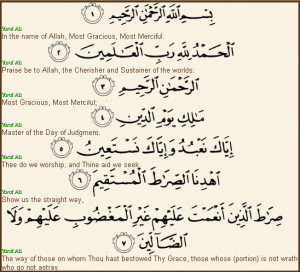 بِسْمِ اللَّهِ الرَّحْمَٰنِ الرَّحِيمِ ١
Yusuf Ali
In the name of Allah, Most Gracious, Most Merciful.
الْحَمْدُ لِلَّهِ رَبِّ الْعَالَمِينَ ٢
Yusuf Ali
Praise be to Allah, the Cherisher and Sustainer of the worlds:
الرَّحْمَٰنِ الرَّحِيمِ ٣
Yusuf Ali
Most Gracious, Most Merciful;
مَالِكِ يَوْمِ الدِّينِ ٤
Yusuf Ali
Master of the Day of Judgment.
إِيَّاكَ نَعْبُدُ وَإِيَّاكَ نَسْتَعِينُ ٥
Yusuf Ali
Thee do we worship, and Thine aid we seek.
اهْدِنَا الصِّرَاطَ الْمُسْتَقِيمَ ٦
Yusuf Ali
Show us the straight way,
صِرَاطَ الَّذِينَ أَنْعَمْتَ عَلَيْهِمْ غَيْرِ الْمَغْضُوبِ عَلَيْهِمْ وَلَا
الضَّالِّينَ ٧
Yusuf Ali
The way of those on whom Thou hast bestowed Thy Grace, those whose (portion) is not wrath
who go not astray.